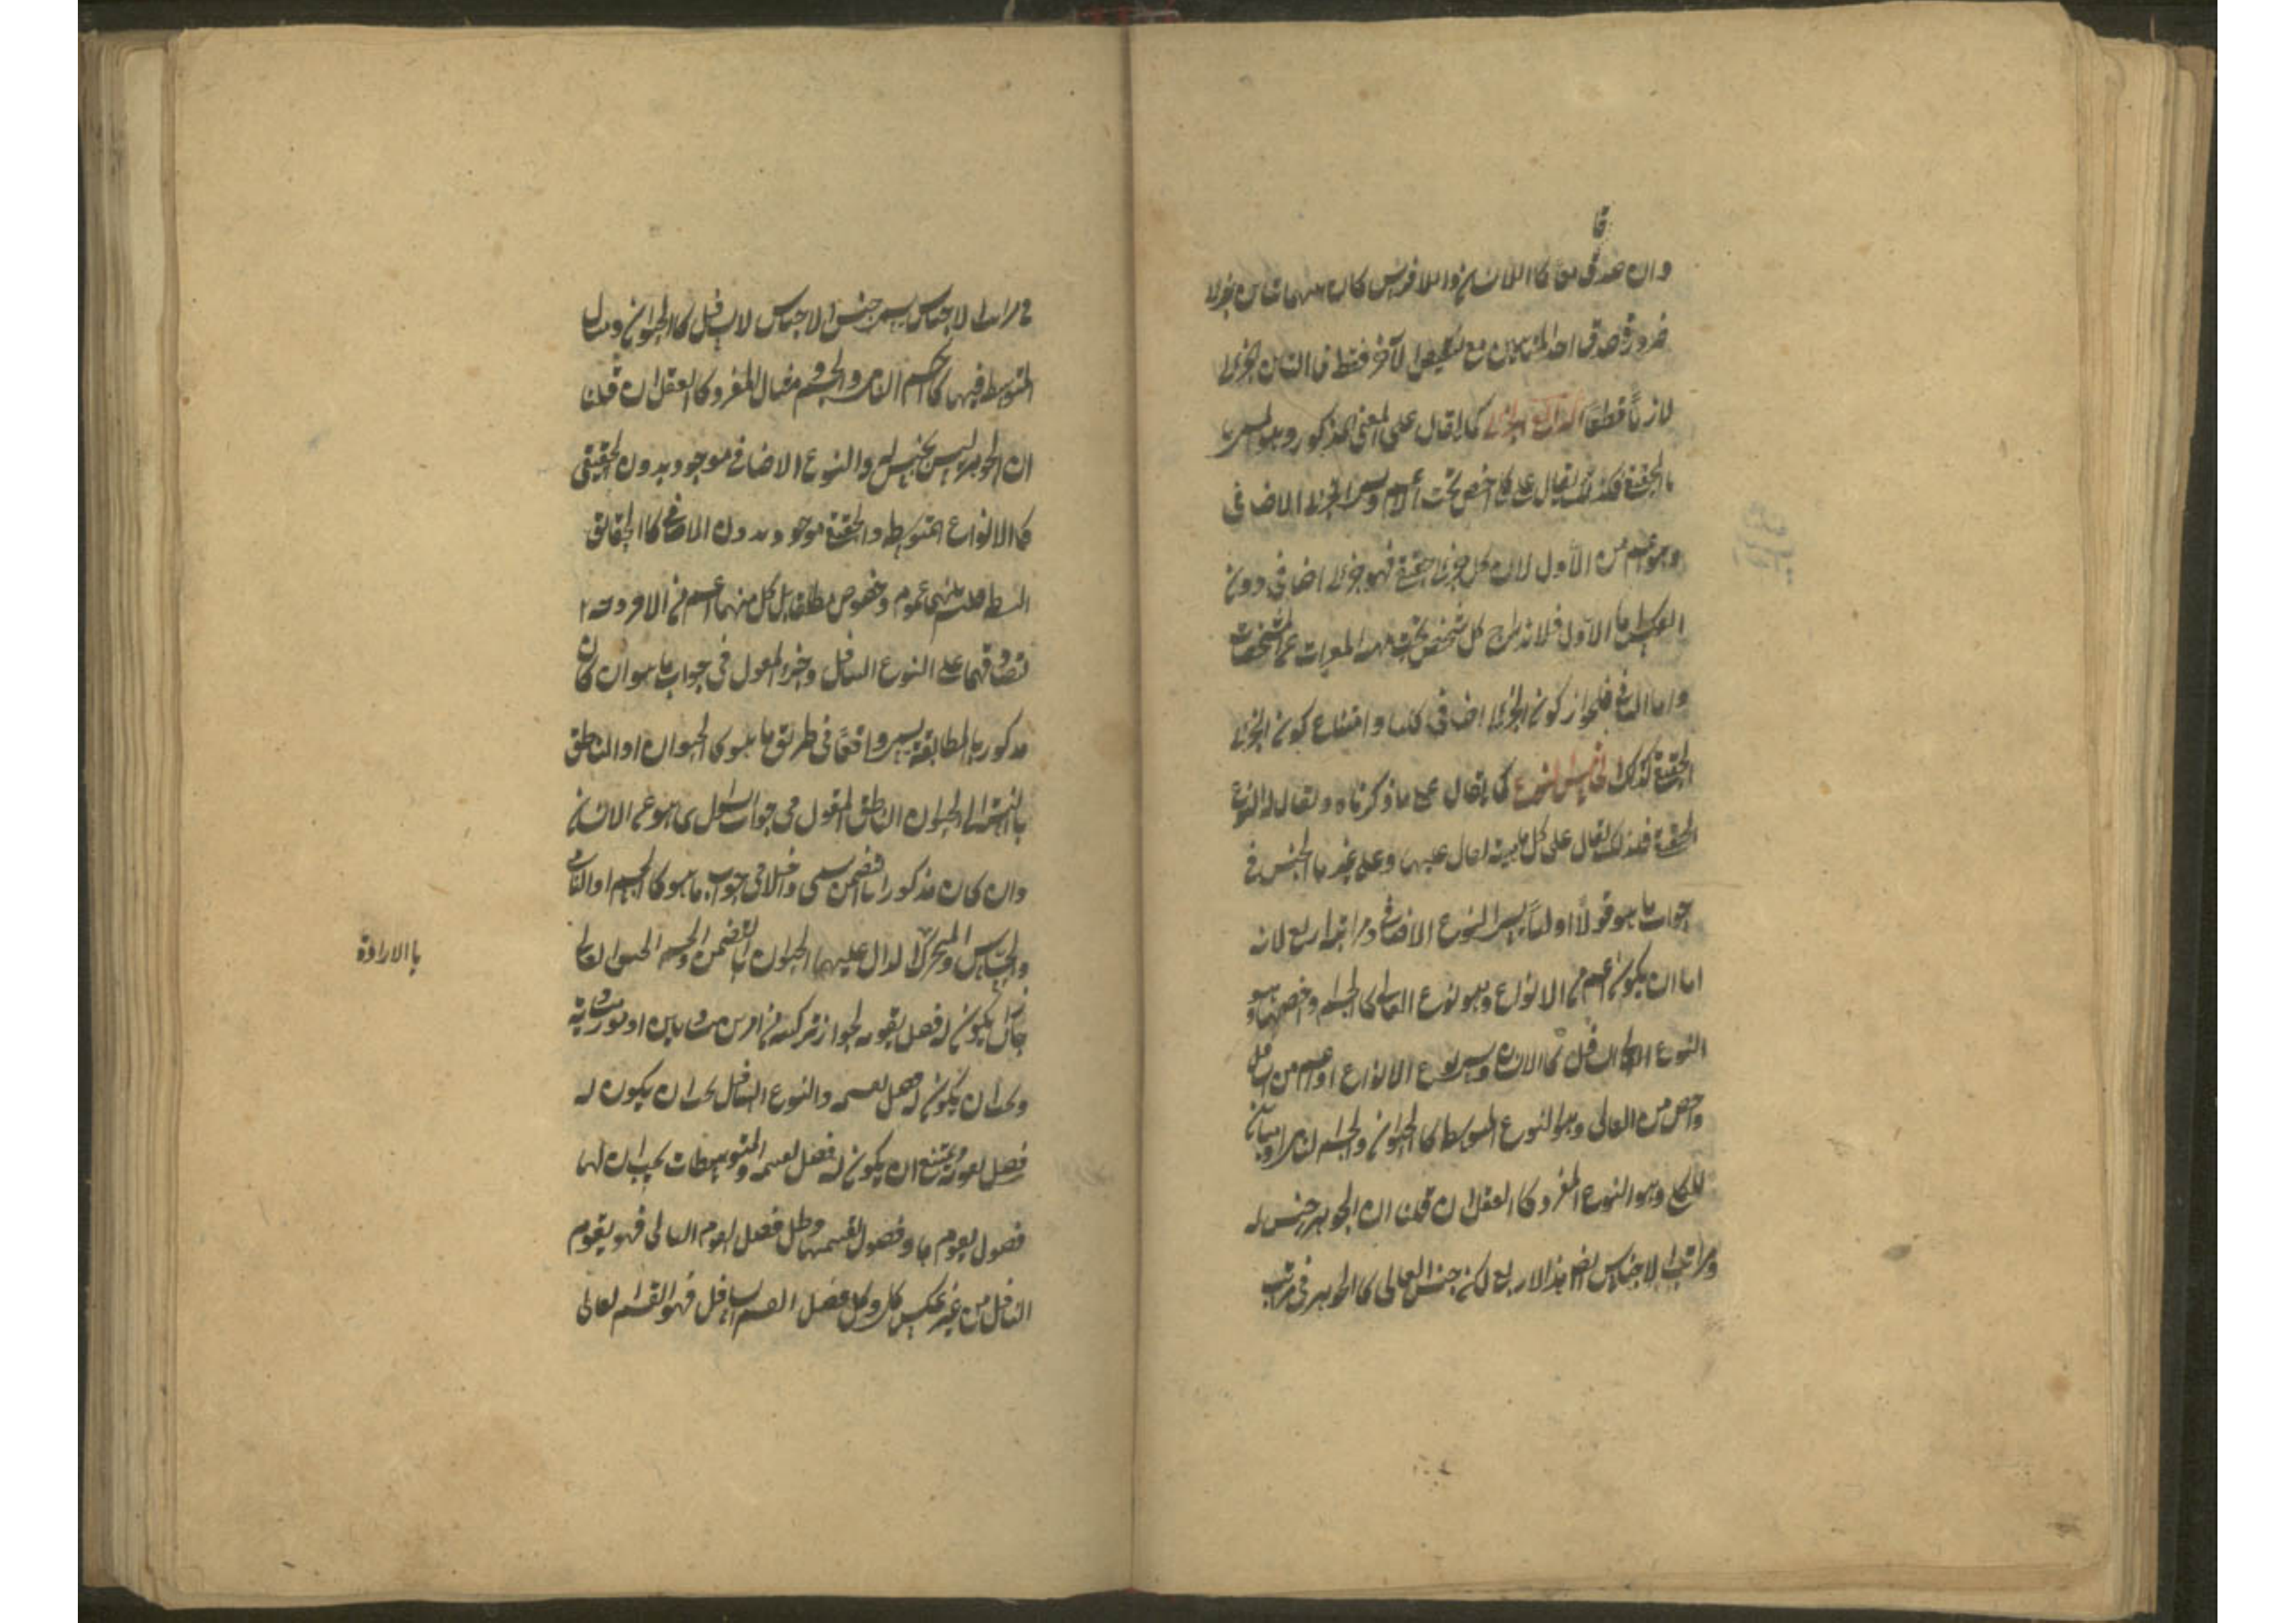 قا
وان صدقا معا كاللاانسان واللافرس كان بينهما تباين جزئى
ضرورة صدق احد المتباينين مع نقيض الآخر فقط فالتباين الجزئى
لازم قطعًا الرابع الجزئى كما يقال على المعنى المذكور ويسمى
بالحقيقى فكذلك يقال على كل اخص تحت الاعم ويسمى الجزئى الاضافى
وهو اعم من الأول لان كل جزئى حقيقى فهو جزئى اضافى دون
العكس اما الأول فلاندراج كل شخص تحت المعرات عن المشخصات
واما الثانى فلجواز كون الجزئى الاضافى كليا وامتناع كون الجزئى
الحقيقى كذلك الخامس النوع كما يقال على ما ذكرناه ويقال له النوع
الحقيقى فكذلك يقال على كل ماهية يقال عليها وعلى غيرها الجنس فى
جواب ما هو قولًا اوليًا يسمى النوع الاضافى ومراتبه اربع لانه
اما ان يكون اعم من الانواع وهو نوع العالى كالجسم واخصها وهو
النوع السافل كالانسان ويسمى نوع الانواع او اعم من السافل
واخص من العالى وهو النوع المتوسط كالحيوان والجسم النامى او مباين
للكل وهو النوع المفرد كالعقل ان قلنا ان الجوهر جنس له
ومراتب الاجناس ايضا هذه الاربع لكن جنس العالى كالجوهر فى مراتب
فى مراتب الاجناس يسمى جنس الاجناس لا السافل كالحيوان ومثال
المتوسط فيها كالجسم النامى والجسم مثال المفرد كالعقل ان قلنا
ان الجوهر ليس بجنس له والنوع الاضافى موجود بدون الحقيقى
كالانواع المتوسطة والحقيقى موجود بدون الاضافى كالحقايق
البسيطة فليس بينهما عموم وخصوص مطلقا بل كل منهما اعم من الآخر من وجه
لتصادقهما على النوع السافل وجزء المقول فى جواب ما هو ان كان
مذكورا بالمطابقة يسمى واقعًا فى طريق ما هو كالحيوان او الناطق
بالنسبة الى الحيوان الناطق المقول فى جواب السؤال بما هو عن الانسان
وان كان مذكورا بالتضمن يسمى داخلا فى جواب ما هو كالجسم او النامى
والحساس والمتحرك الدال عليها الحيوان بالتضمن والجنس العالى
بالارادة
جاز ان يكون له فصل يقومه لجواز تركبه من امرين متساويين او امور متساوية
ويجب ان يكون له فصل يقسمه والنوع السافل يجب ان يكون له
فصل يقومه ويمتنع ان يكون له فصل يقسمه والمتوسطات يجب ان لها
فصول يقومها وفصول تقسمها وكل فصل يقوم العالى فهو يقوم
السافل من غير عكس كلى وكل فصل يقسم السافل فهو يقسم العالى